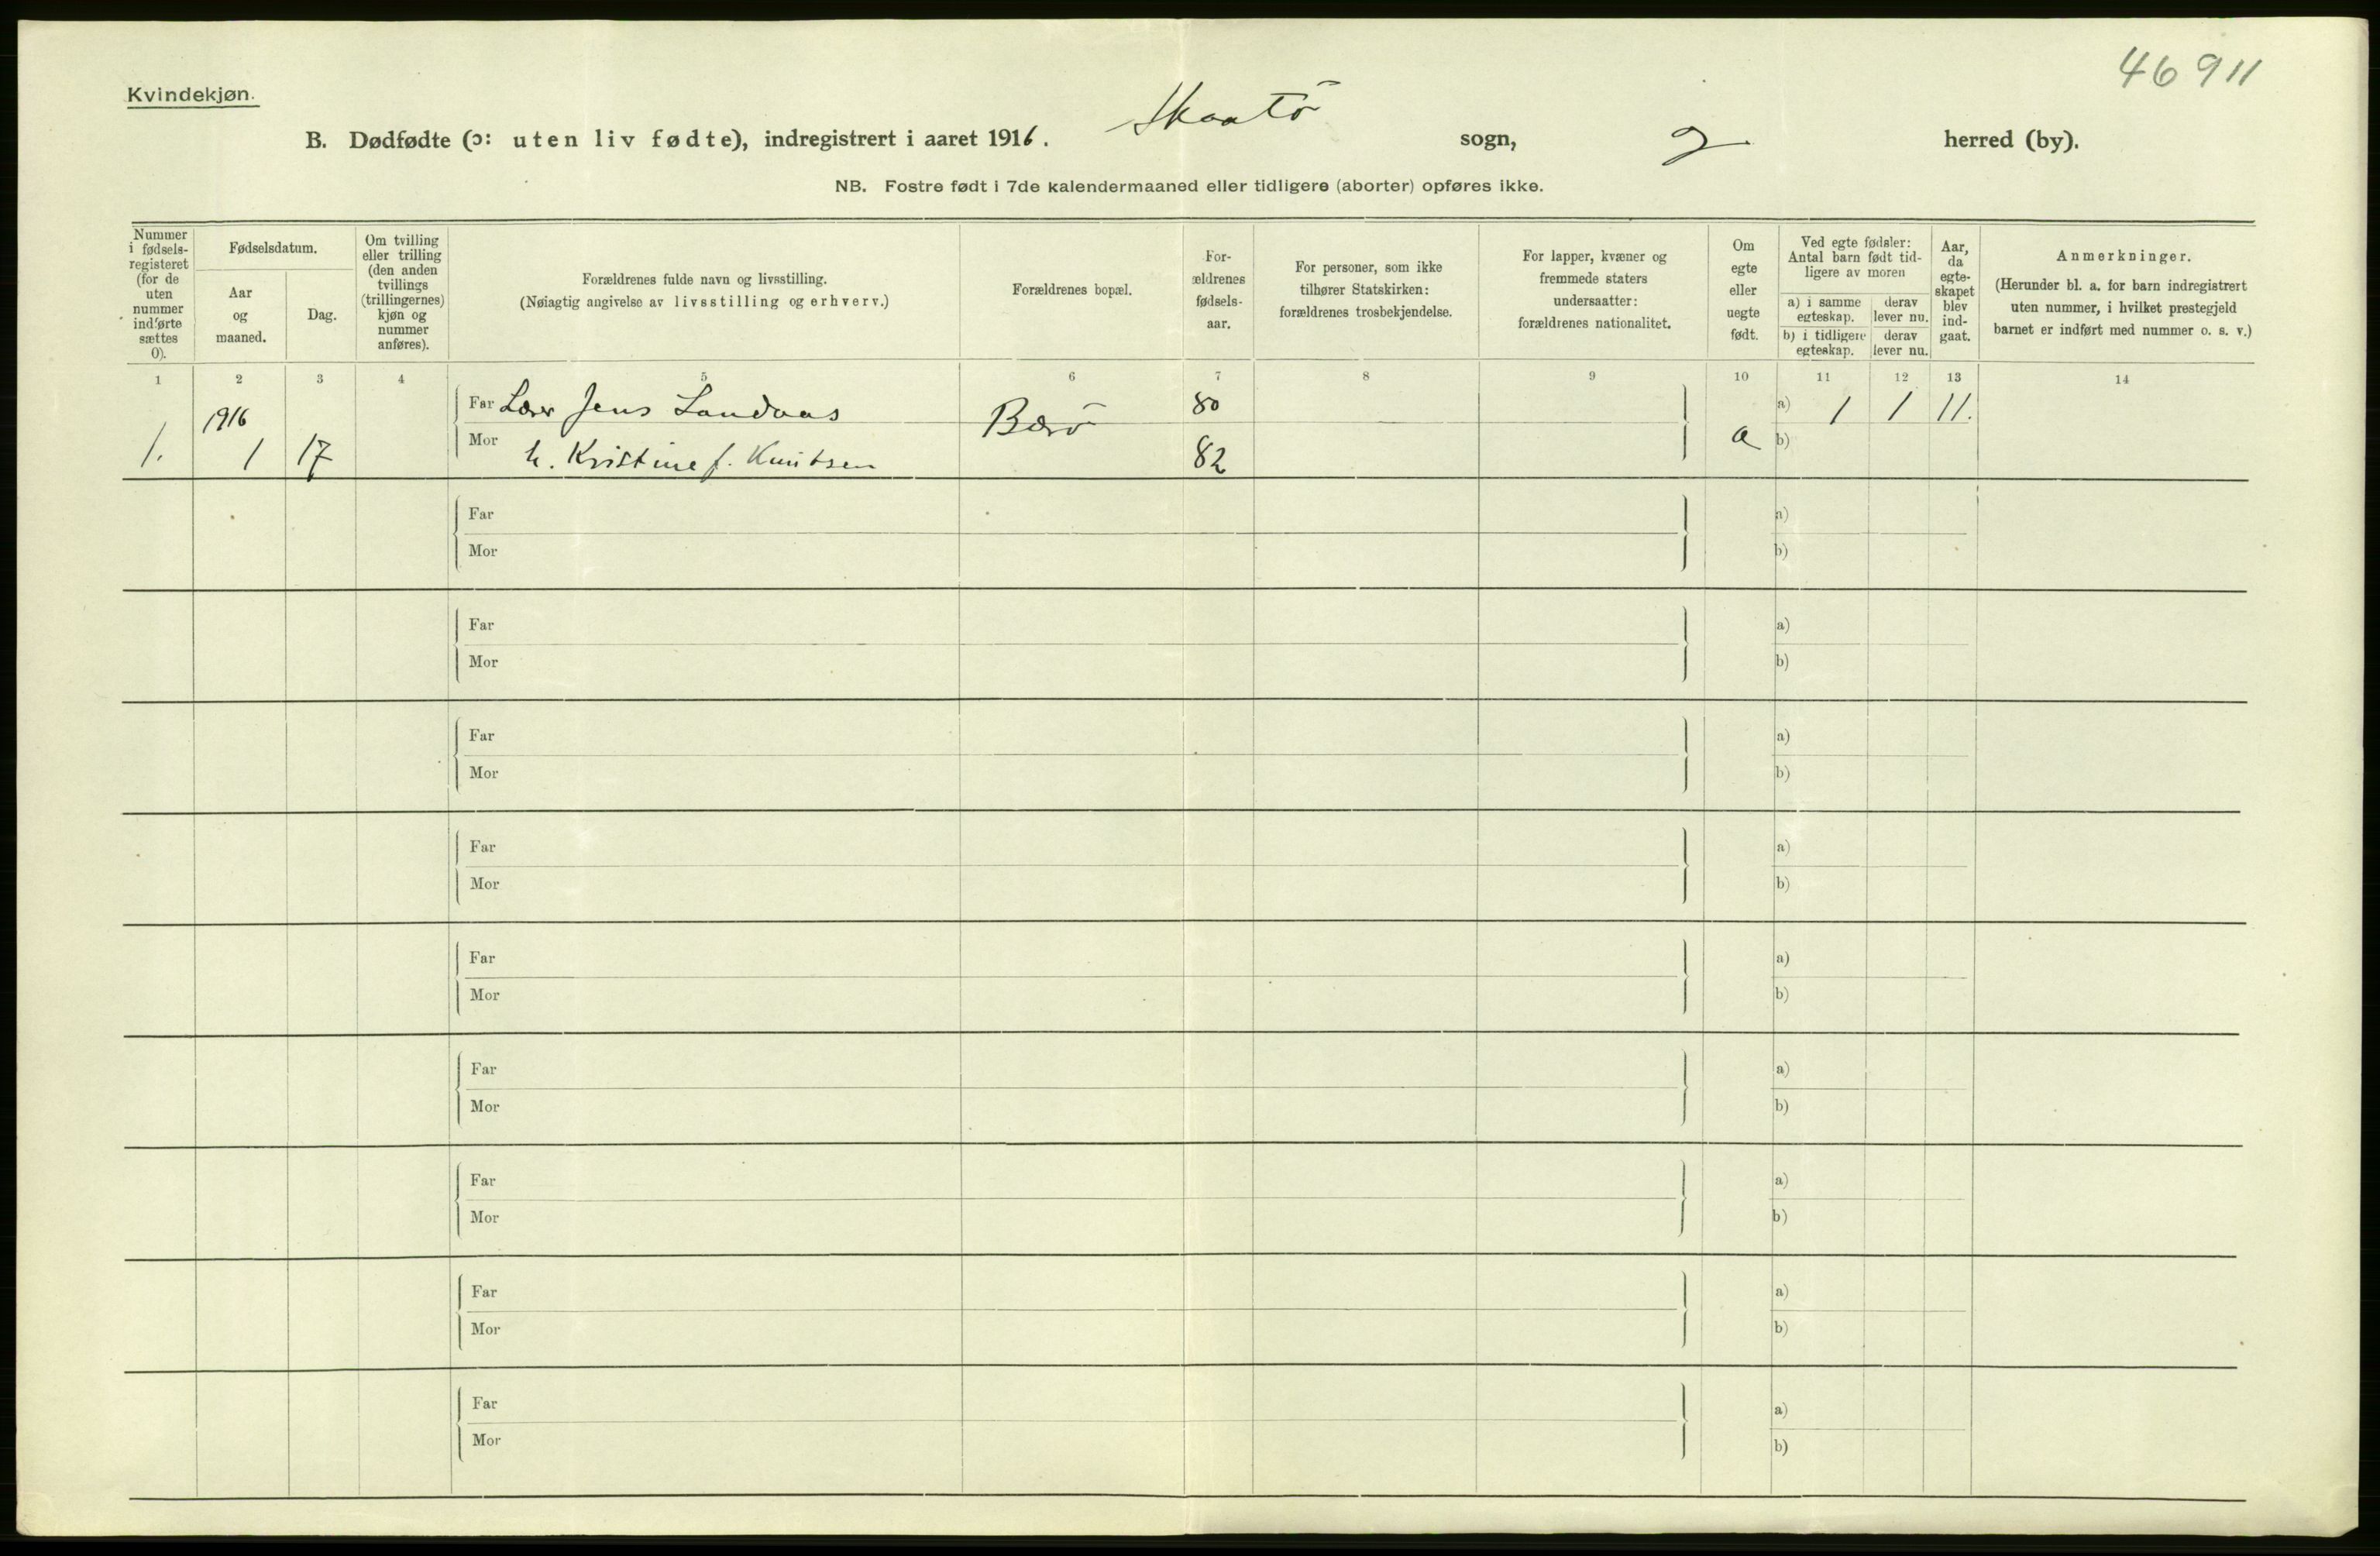 46 911
Kvindekjøn.
B. Dødfødte (ɔ: uten liv fødte), indregistrert i aaret 1916. Skaatö sogn, herred (by).
NB. Fostre født i 7de kalendermaaned eller tidligere (aborter) opføres ikke.
Nummer
i fødsels-
registeret
(for de
uten
nummer
indførte
sættes
0).
Fødselsdatum.
Aar
og
maaned.
Dag.
Om tvilling
eller trilling
(den anden
tvillings
(trillingernes)
kjøn og
nummer
anføres).
Forældrenes fulde navn og livsstilling.
(Nøiagtig angivelse av livsstilling og erhverv.)
Forældrenes bopæl.
For-
ældrenes
fødsels-
aar.
For personer, som ikke
tilhører Statskirken:
forældrenes trosbekjendelse.
For lapper, kvæner og
fremmede staters
undersaatter:
forældrenes nationalitet.
Om
egte
eller
uegte
født.
Ved egte fødsler:
Antal barn født tid-
ligere av moren
a) i samme
egteskap.
derav
lever nu.
b) i tidligere
egteskap.
derav
lever nu.
Aar,
da
egte-
skapet
blev
ind-
gaat.
Anmerkninger.
(Herunder bl. a. for barn indregistrert
uten nummer, i hvilket prestegjeld
barnet er indført med nummer o. s. v.)
1 2 3 4 5 6 7 8 9 10 11 12 13 14
1916 Far Lærer Jens Landaas Bærö 80 a) 1 1 11.
1. 1 17 Mor h. Kristine f. Knutsen 82 a b)
Far a)
Mor b)
Far a)
Mor b)
Far a)
Mor b)
Far a)
Mor b)
Far a)
Mor b)
Far a)
Mor b)
Far a)
Mor b)
Far a)
Mor b)
Far a)
Mor b)